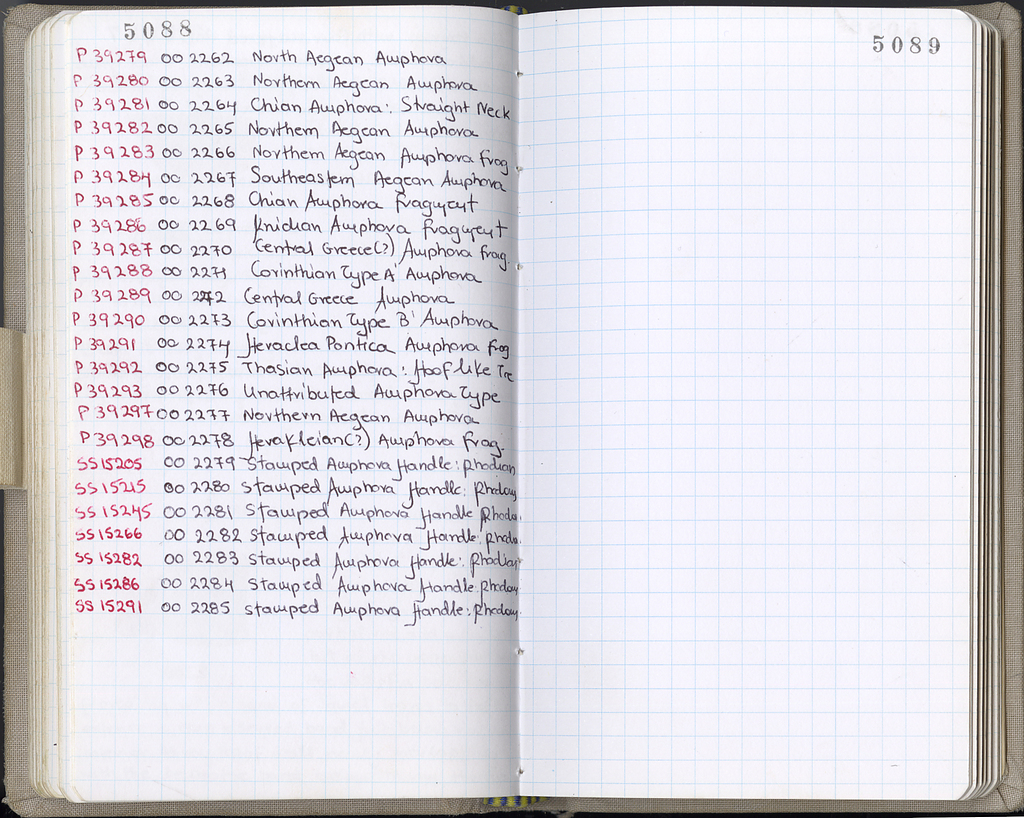 5088
P 39279 OO 2262 North Aegean Amphora
P 39280 OO 2263 Northern Aegean Amphora
P 39281 OO 2264 Chian Amphora: Straight Neck
P 39282 OO 2265 Northern Aegean Amphora
P 39283 OO 2266 Northern Aegean Amphora Frag.
P 39284 OO 2267 Southeastern Aegean Amphora
P 39285 OO 2268 Chian Amphora Fragment
P 39286 OO 2269 Knidian Amphora Fragment
P 39287 OO 2270 Central Greece(?) Amphora Frag.
P 39288 OO 2271 Corinthian Type A' Amphora
P 39289 OO 2272 Central Greece Amphora
P 39290 OO 2273 Corinthian Type B' Amphora
P 39291 OO 2274 Heraclea Pontica Amphora Frag
P 39292 OO 2275 Thasian Amphora: Hoof like Tre
P 39293 OO 2276 Unattributed Amphora Type
P 39297 OO 2277 Northern Aegean Amphora
P 39298 OO 2278 Herakleian(?) Amphora Frag.
SS 15205 OO 2279 Stamped Amphora Handle: Rhodian
SS 15215 OO 2280 Stamped Amphora Handle: Rhodian
SS 15245 OO 2281 Stamped Amphora Handle Rhodia.
SS 15266 OO 2282 Stamped Amphora Handle: Rhodia.
SS 15282 OO 2283 Stamped Amphora Handle: Rhodian
SS 15286 OO 2284 Stamped Amphora Handle Rhodian
SS 15291 OO 2285 Stamped Amphora Handle: Rhodian
5089